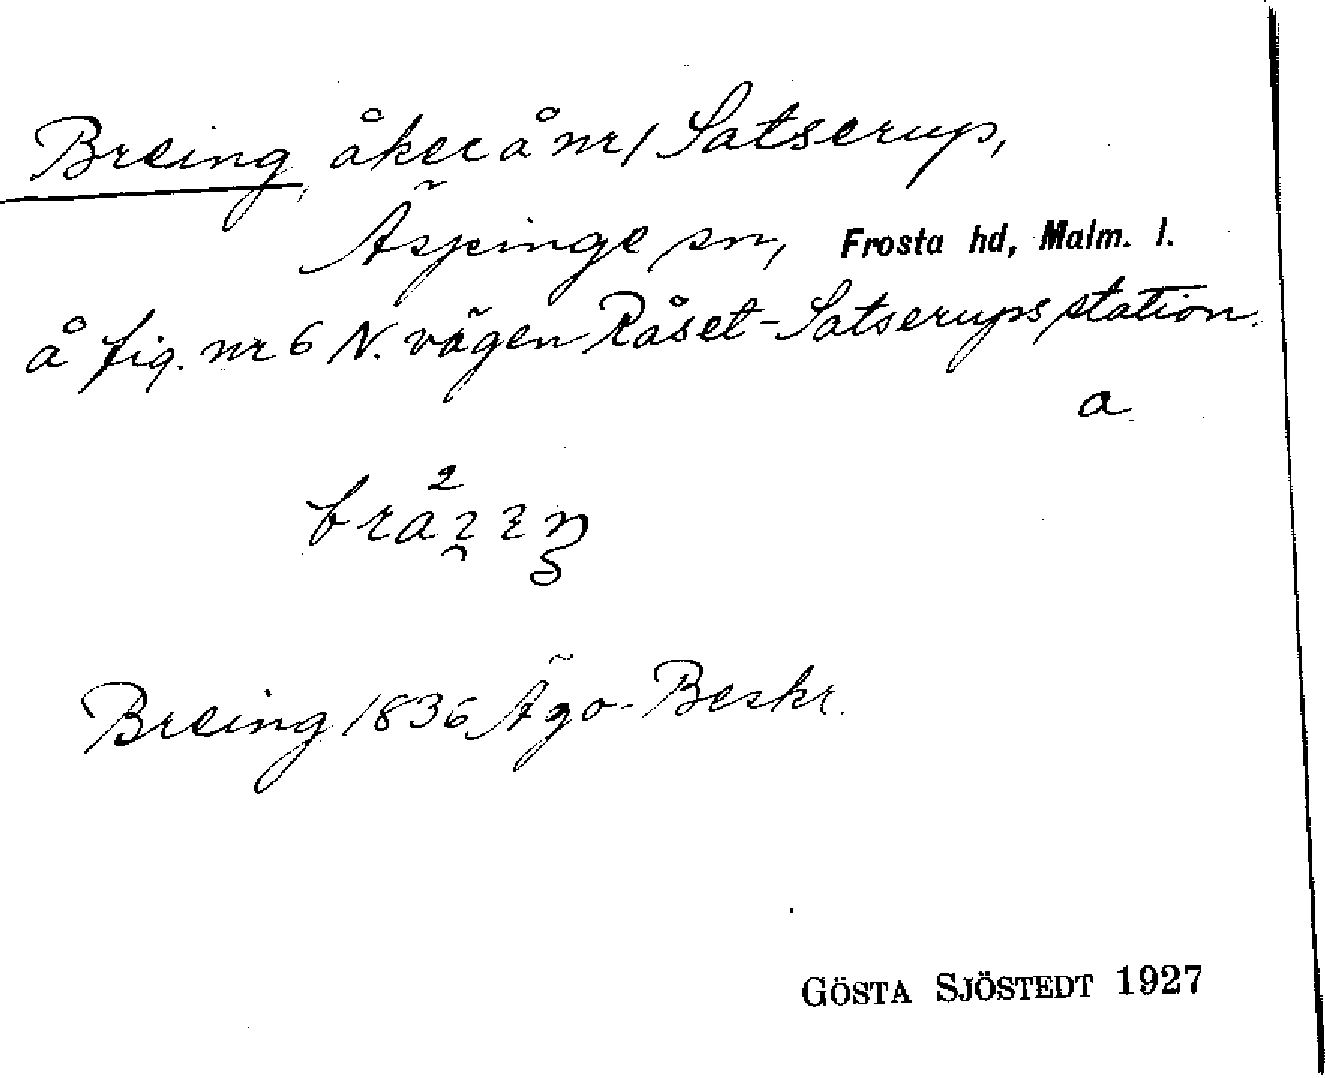 Breing, åker å nr 1 Satserup,
Äspinge sn, Frosta hd, Malm. l.
å fig. nr 6 N. vägen Råset-Satserups station.
a
Breing 1836 Ägo-Beskr.
GÖSTA SJÖSTEDT 1927